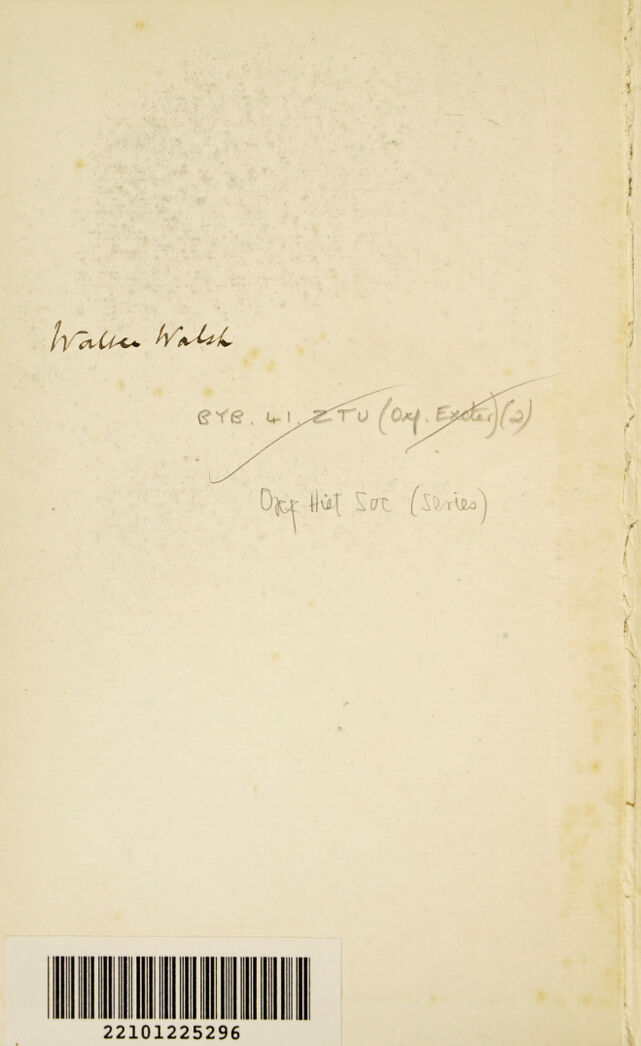 Walter Walsh
BYB. 41. ZTU (Oxf. Exeter) (2)
Oxf Hist Soc (Series)
22101225296